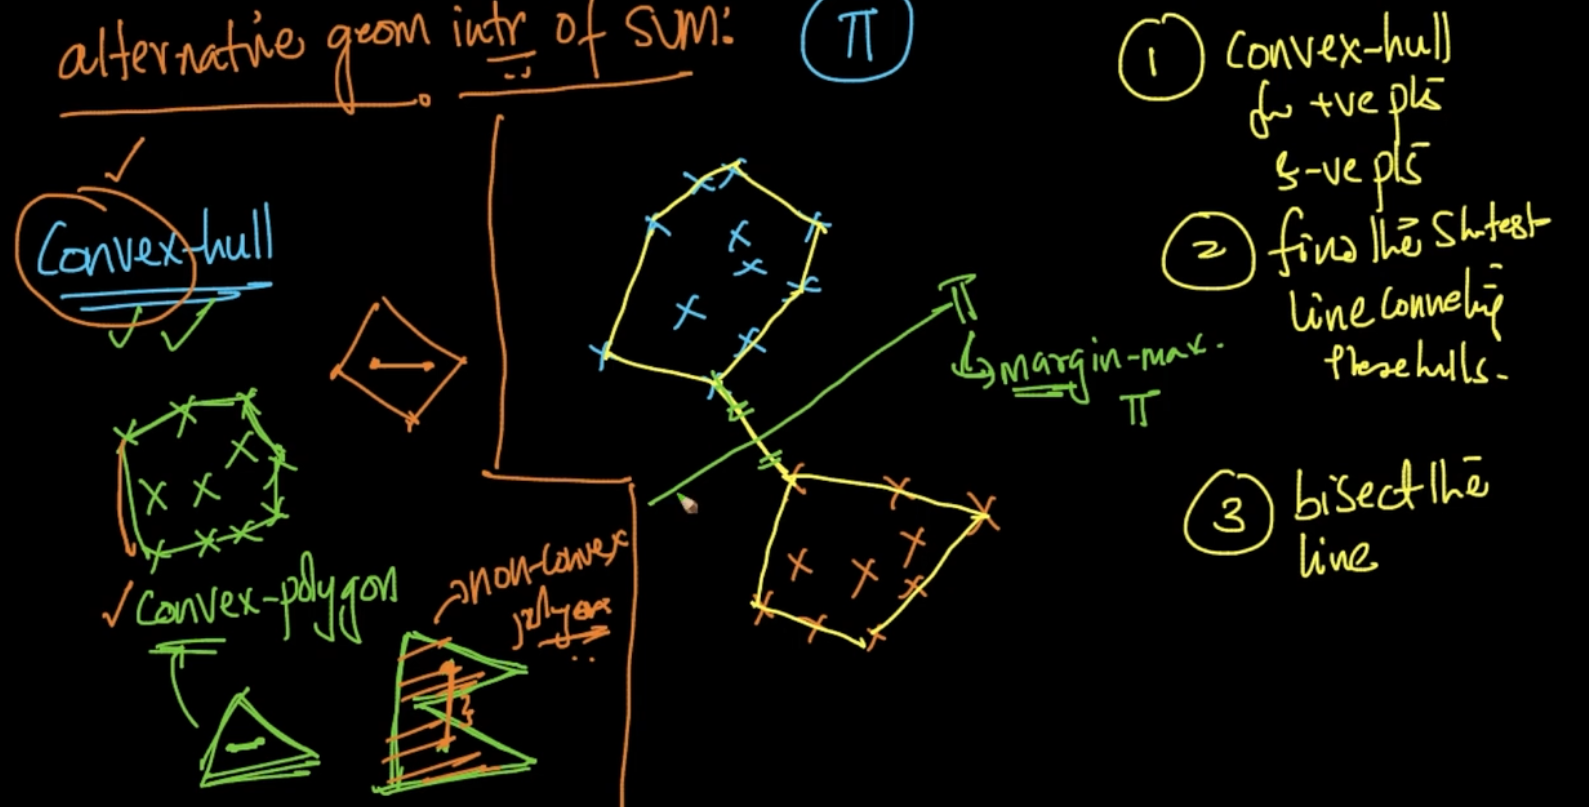 alternative geom intr of SVM:
π
Convex-hull
convex-polygon
non-convex
polygon
π
margin-max.
π
1 Convex-hull
for +ve pts
& -ve pts
2 find the Shortest
line connecting
these hulls.
3 bisect the
line